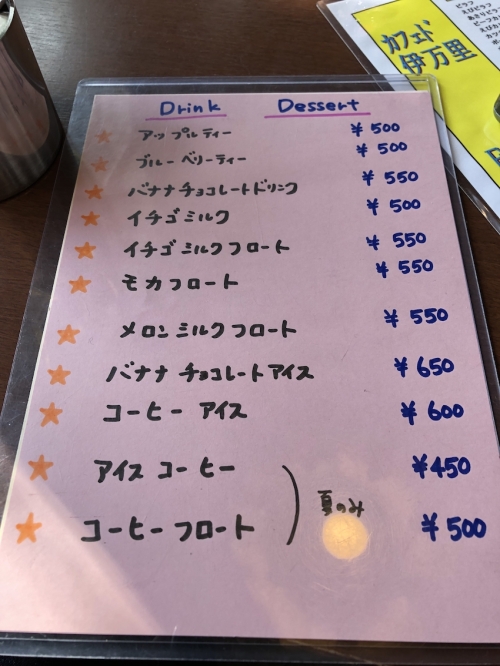 カフェド
伊万里
ピラフ
えびピラフ
Drink Dessert
アップルティー ¥500
ブルーベリーティー ¥500
バナナチョコレートドリンク ¥550
イチゴミルク ¥500
イチゴミルクフロート ¥550
モカフロート ¥550
メロンミルクフロート ¥550
バナナチョコレートアイス ¥650
コーヒーアイス ¥600
アイスコーヒー ¥450
夏のみ
コーヒーフロート ¥500